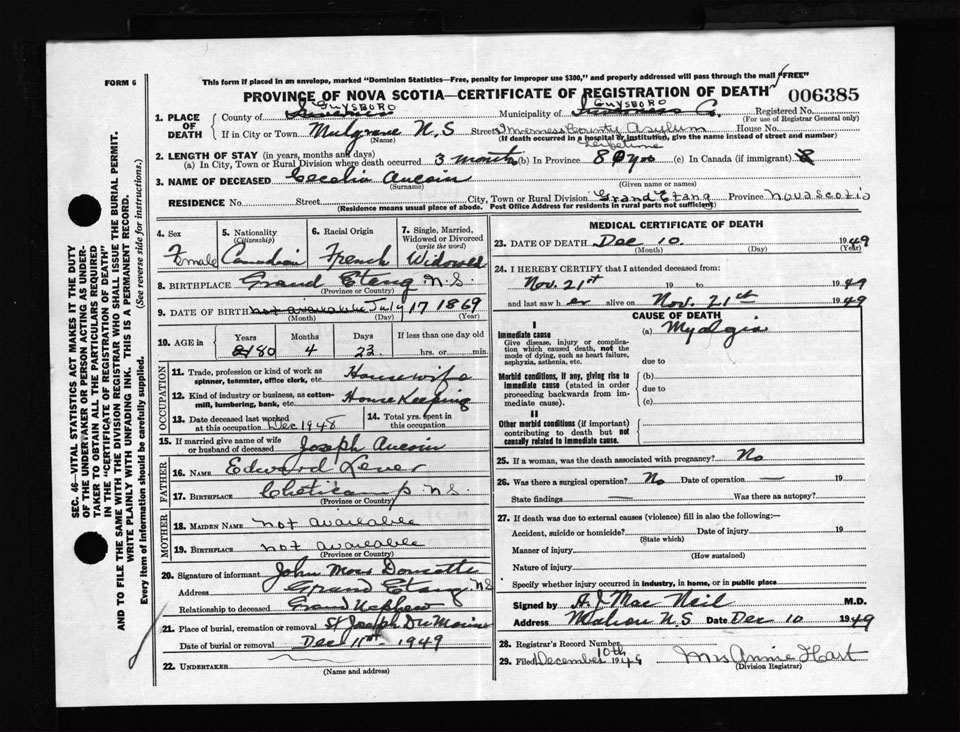 FORM 6
This form if placed in an envelope, marked "Dominion Statistics—Free, penalty for improper use $300," and properly addressed will pass through the mail "FREE"
PROVINCE OF NOVA SCOTIA—CERTIFICATE OF REGISTRATION OF DEATH
006385
1. PLACE OF DEATH
County of Guysboro
Municipality of Guysboro
Registered No.
(For use of Registrar General only)
If in City or Town Mulgrave N.S
(Name)
Street Inverness County Asylum House No.
(If death occurred in a hospital or institution, give the name instead of street and number)
2. LENGTH OF STAY (in years, months and days)
Lifetime
(a) In City, Town or Rural Division where death occurred 3 months (b) In Province 80 yrs (c) In Canada (if immigrant)
3. NAME OF DECEASED Cecelia Aucoin
(Surname) (Given name or names)
RESIDENCE No. Street City, Town or Rural Division Grand Etang Province Nova Scotia
(Residence means usual place of abode. Post Office Address for residents in rural parts not sufficient)
4. Sex
Female
5. Nationality
(Citizenship)
Canadian
6. Racial Origin
French
7. Single, Married, Widowed or Divorced
(write the word)
Widowed
8. BIRTHPLACE Grand Etang N.S.
(Province or Country)
9. DATE OF BIRTH not available July 17 1869
(Month) (Day) (Year)
10. AGE in
Years Months Days If less than one day old
80 4 23 hrs. or min.
OCCUPATION
11. Trade, profession or kind of work as spinner, teamster, office clerk, etc. Housewife
12. Kind of industry or business, as cotton-mill, lumbering, bank, etc. House Keeping
13. Date deceased last worked at this occupation Dec 1948
14. Total yrs. spent in this occupation
15. If married give name of wife or husband of deceased Joseph Aucoin
FATHER
16. NAME Edward
17. BIRTHPLACE Cheticamp N.S.
(Province or Country)
MOTHER
18. MAIDEN NAME not available
19. BIRTHPLACE not available
(Province or Country)
20. Signature of informant John Doucette
Address Grand Etang N.S
Relationship to deceased Grand Nephew
21. Place of burial, cremation or removal St Joseph Du Moine
Date of burial or removal Dec 11st - 1949
22. UNDERTAKER
(Name and address)
MEDICAL CERTIFICATE OF DEATH
23. DATE OF DEATH Dec 10 1949
(Month) (Day) (Year)
24. I HEREBY CERTIFY that I attended deceased from:
Nov. 21st 19 to 1949
and last saw her alive on Nov. 21st 1949
CAUSE OF DEATH
I
Immediate cause
Give disease, injury or complication which caused death, not the mode of dying, such as heart failure, asphyxia, asthenia, etc.
(a) Myalgia
due to
Morbid conditions, if any, giving rise to immediate cause (stated in order proceeding backwards from immediate cause).
(b)
due to
(c)
II
Other morbid conditions (if important) contributing to death but not causally related to immediate cause.
25. If a woman, was the death associated with pregnancy? No
26. Was there a surgical operation? No Date of operation — 19
State findings — Was there an autopsy?
27. If death was due to external causes (violence) fill in also the following:—
Accident, suicide or homicide? Date of injury 19
(State which)
Manner of injury
(How sustained)
Nature of injury
Specify whether injury occurred in industry, in home, or in public place
Signed by A J Mac Neil M.D.
Address Mabou N.S Date Dec 10 1949
28. Registrar's Record Number
29. Filed December 10th 1949 Mrs Annie Hart
(Division Registrar)
SEC. 46—VITAL STATISTICS ACT MAKES IT THE DUTY
OF THE UNDERTAKER OR PERSON ACTING AS UNDER-
TAKER TO OBTAIN ALL THE PARTICULARS REQUIRED
IN THE "CERTIFICATE OF REGISTRATION OF DEATH"
AND TO FILE THE SAME WITH THE DIVISION REGISTRAR WHO SHALL ISSUE THE BURIAL PERMIT.
WRITE PLAINLY WITH UNFADING INK. THIS IS A PERMANENT RECORD.
Every item of Information should be carefully supplied. (See reverse side for instructions.)